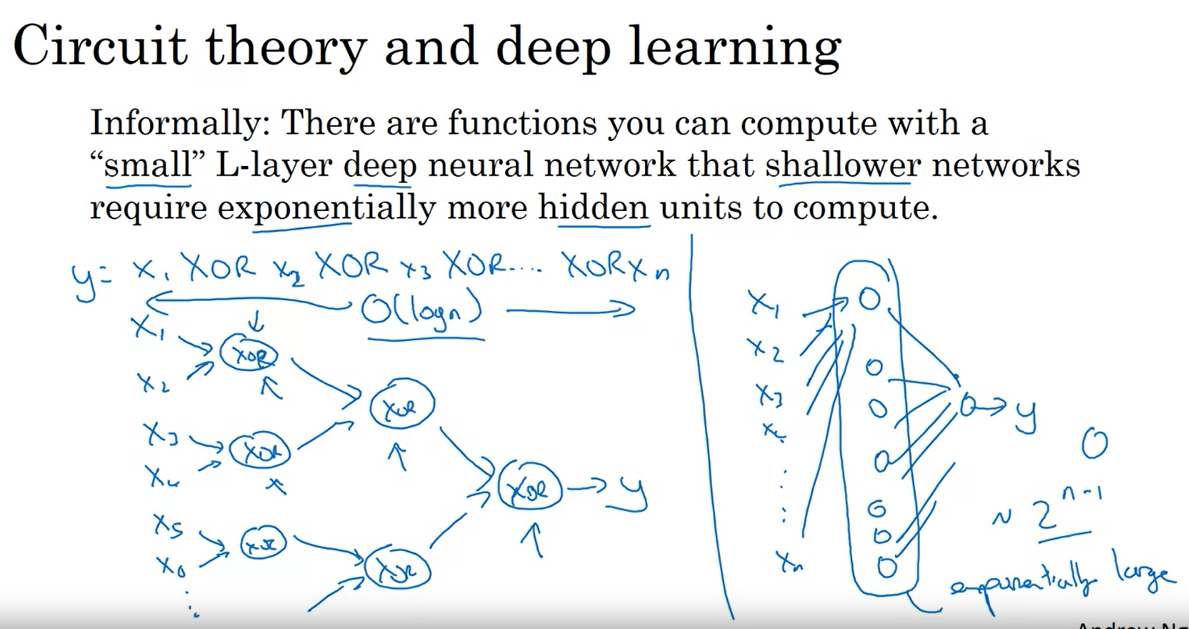 Circuit theory and deep learning
Informally: There are functions you can compute with a
“small” L-layer deep neural network that shallower networks
require exponentially more hidden units to compute.
y= x1 XOR x2 XOR x3 XOR.... XOR xn
O(logn)
x1
XOR
x2
XOR
x3
XOR
x4
XOR → y
x5
x6
XOR
x1
x2
x3
xn
→ y
O
~ 2^n-1
exponentially large